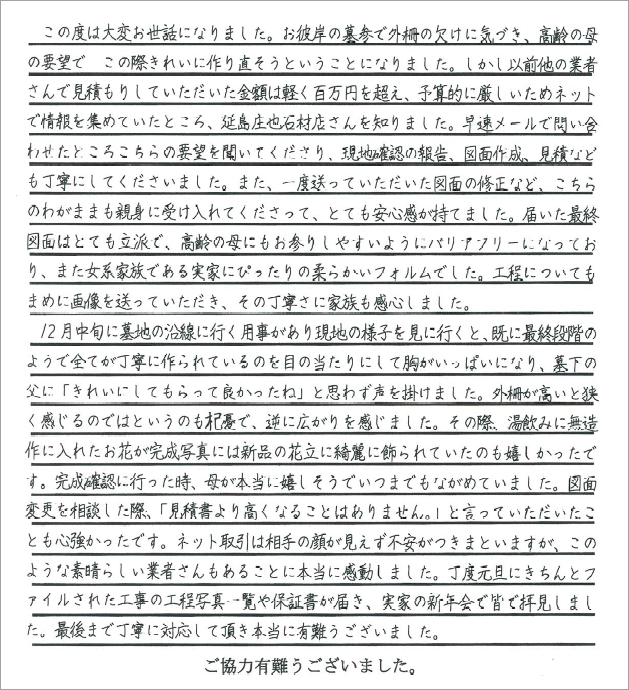 この度は大変お世話になりました。お彼岸の墓参で外柵の欠けに気づき、高齢の母
の要望で この際きれいに作り直そうということになりました。しかし以前他の業者
さんで見積もりしていただいた金額は軽く百万円を超え、予算的に厳しいためネット
で情報を集めていたところ、延島庄也石材店さんを知りました。早速メールで問い合
わせたところこちらの要望を聞いてくださり、現地確認の報告、図面作成、見積など
も丁寧にしてくださいました。また、一度送っていただいた図面の修正など、こちら
のわがままも親身に受け入れてくださって、とても安心感が持てました。届いた最終
図面はとても立派で、高齢の母にもお参りしやすいようにバリアフリーになってお
り、また女系家族である実家にぴったりの柔らかいフォルムでした。工程についても
まめに画像を送っていただき、その丁寧さに家族も感心しました。
12月中旬に墓地の沿線に行く用事があり現地の様子を見に行くと、既に最終段階の
ようで全てが丁寧に作られているのを目の当たりにして胸がいっぱいになり、墓下の
父に「きれいにしてもらって良かったね」と思わず声を掛けました。外柵が高いと狭
く感じるのではというのも杞憂で、逆に広がりを感じました。その際、湯飲みに無造
作に入れたお花が完成写真には新品の花立に綺麗に飾られていたのも嬉しかったで
す。完成確認に行った時、母が本当に嬉しそうでいつまでもながめていました。図面
変更を相談した際、「見積書より高くなることはありません。」と言っていただいたこ
とも心強かったです。ネット取引は相手の顔が見えず不安がつきまといますが、この
ような素晴らしい業者さんもあることに本当に感動しました。丁度元旦にきちんとフ
ァイルされた工事の工程写真一覧や保証書が届き、実家の新年会で皆で拝見しまし
た。最後まで丁寧に対応して頂き本当に有難うございました。
ご協力有難うございました。